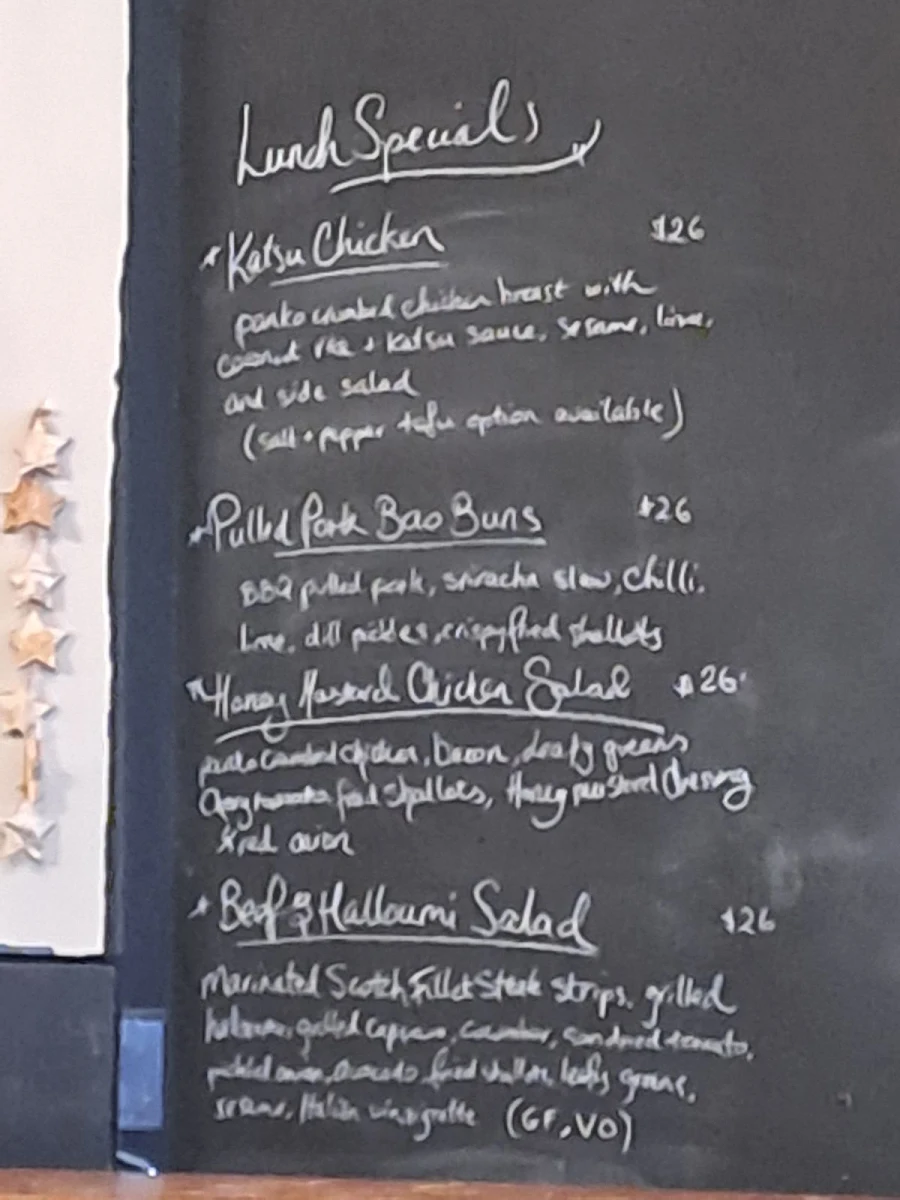 Lunch Specials
Katsu Chicken $26
panko crumbed chicken breast with
coconut rice + Katsu sauce, sesame, lime,
and side salad
(salt + pepper tofu option available)
Pulled Pork Bao Buns $26
BBQ pulled pork, sriracha slaw, chilli,
lime, dill pickles, crispy fried shallots
Honey Mustard Chicken Salad $26
panko crumbed chicken, bacon, leafy greens
fried shallots, Honey mustard dressing
& red onion
Beef & Halloumi Salad $26
Marinated Scotch Fillet Steak strips, grilled
haloumi, grilled capsicum, cucumber, sundried tomato,
pickled onion, avocado, fried shallots, leafy greens,
sesame, Italian vinaigrette (GF, VO)